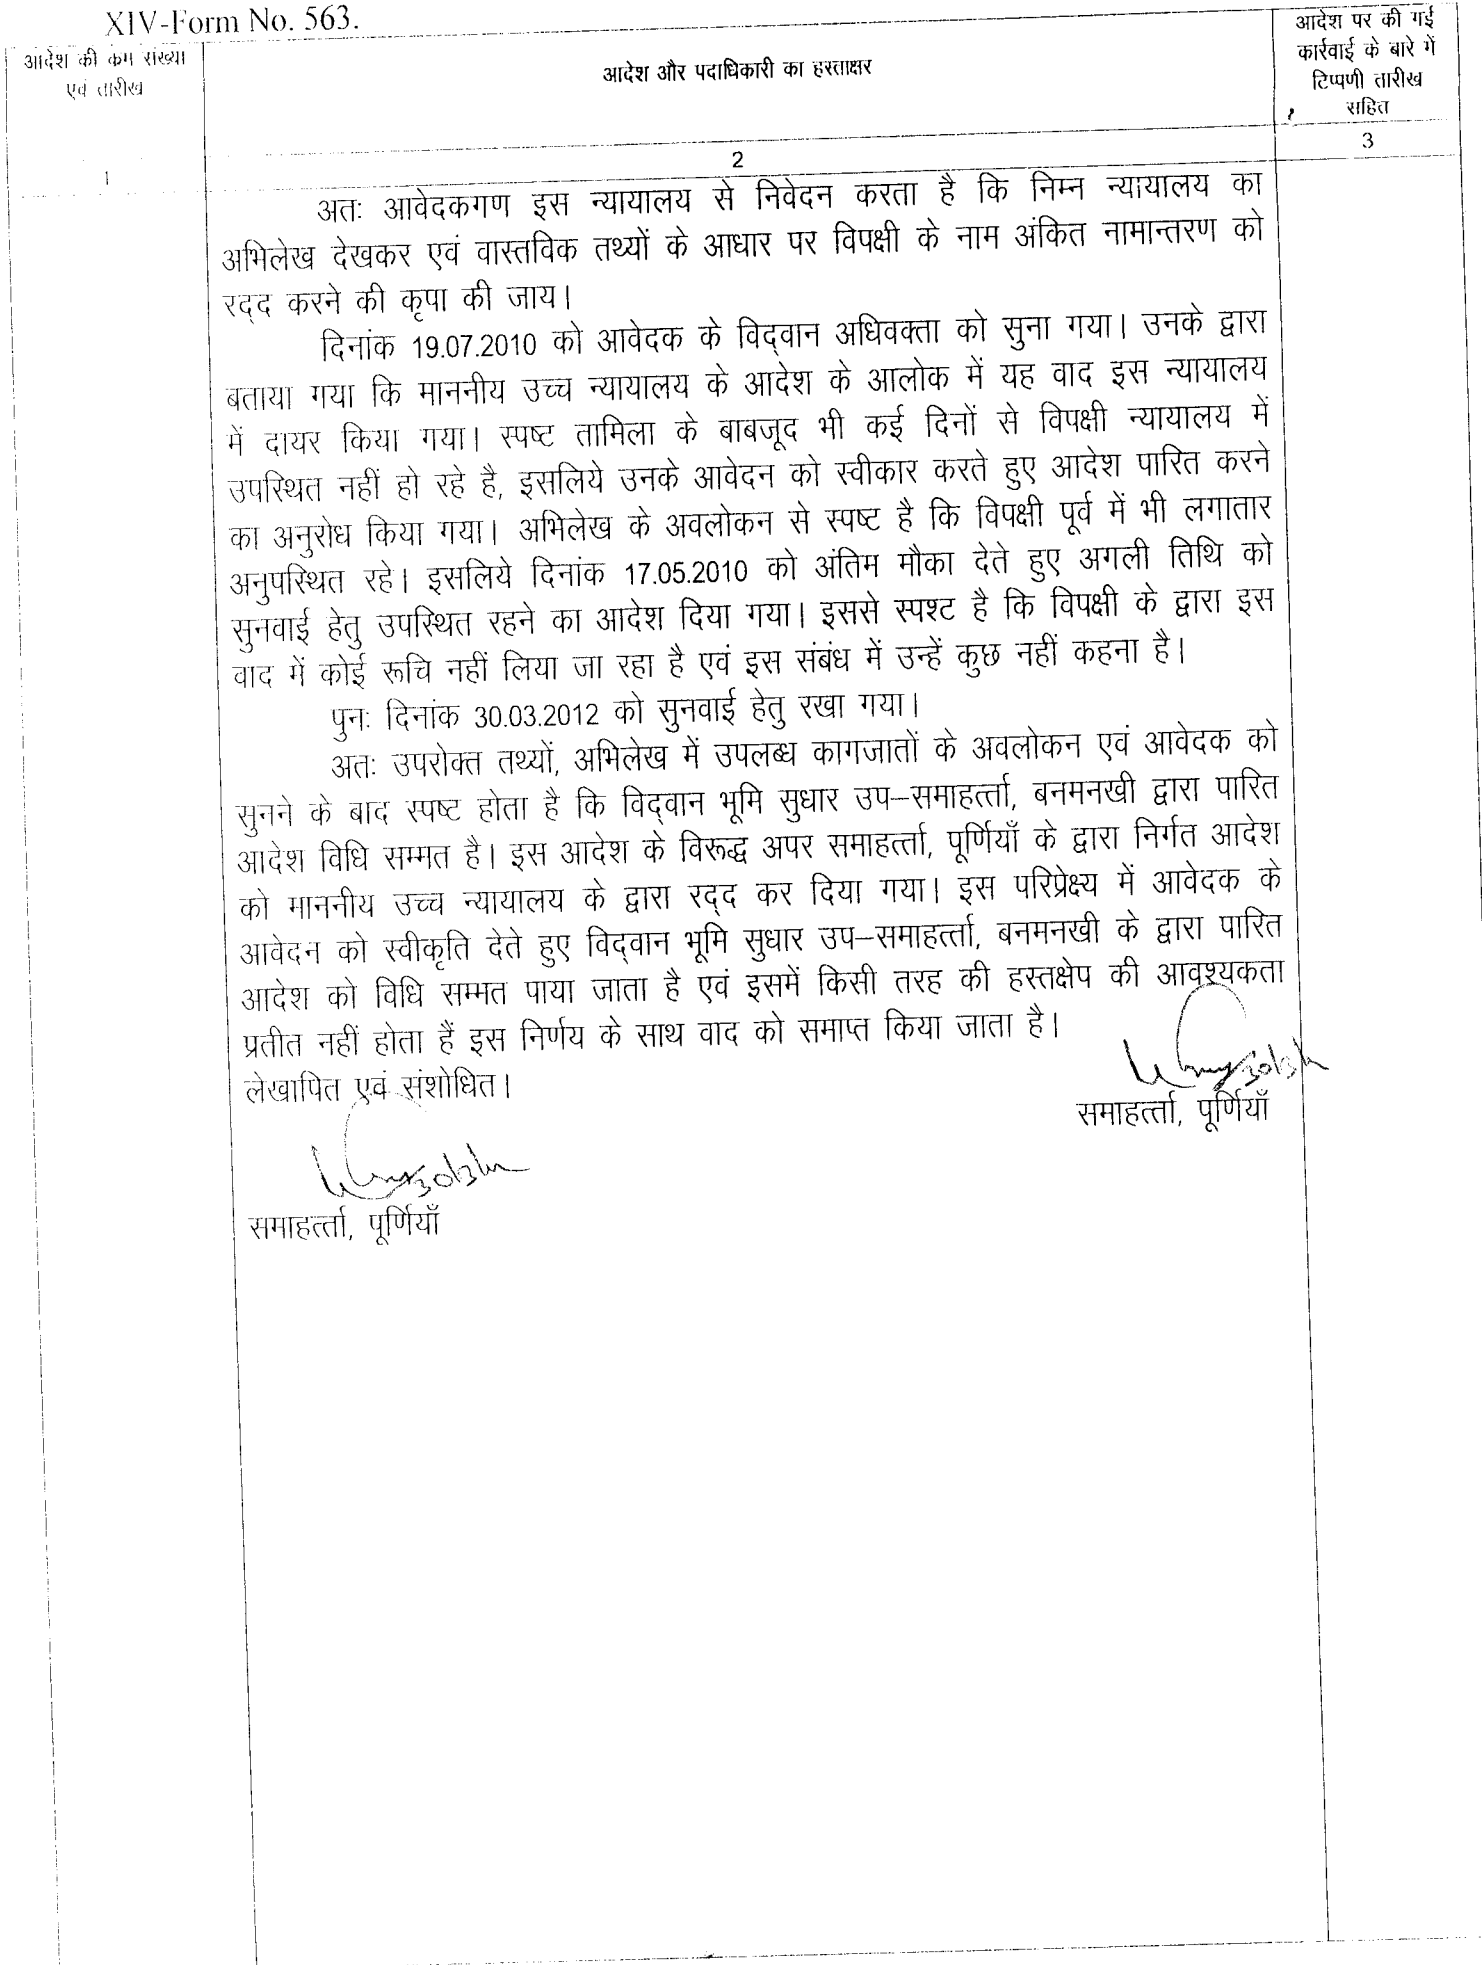 XIV-Form No. 563.
आदेश की कम संख्या
एवं तारीख
आदेश और पदाधिकारी का हस्ताक्षर
आदेश पर की गई
कार्रवाई के बारे में
टिप्पणी तारीख
सहित
1
2
3
अतः आवेदकगण इस न्यायालय से निवेदन करता है कि निम्न न्यायालय का
अभिलेख देखकर एवं वास्तविक तथ्यों के आधार पर विपक्षी के नाम अंकित नामान्तरण को
रद्द करने की कृपा की जाय।
दिनांक 19.07.2010 को आवेदक के विद्वान अधिवक्ता को सुना गया। उनके द्वारा
बताया गया कि माननीय उच्च न्यायालय के आदेश के आलोक में यह वाद इस न्यायालय
में दायर किया गया। स्पष्ट तामिला के बाबजूद भी कई दिनों से विपक्षी न्यायालय में
उपस्थित नहीं हो रहे है, इसलिये उनके आवेदन को स्वीकार करते हुए आदेश पारित करने
का अनुरोध किया गया। अभिलेख के अवलोकन से स्पष्ट है कि विपक्षी पूर्व में भी लगातार
अनुपस्थित रहे। इसलिये दिनांक 17.05.2010 को अंतिम मौका देते हुए अगली तिथि को
सुनवाई हेतु उपस्थित रहने का आदेश दिया गया। इससे स्पश्ट है कि विपक्षी के द्वारा इस
वाद में कोई रूचि नहीं लिया जा रहा है एवं इस संबंध में उन्हें कुछ नहीं कहना है।
पुनः दिनांक 30.03.2012 को सुनवाई हेतु रखा गया।
अतः उपरोक्त तथ्यों, अभिलेख में उपलब्ध कागजातों के अवलोकन एवं आवेदक को
सुनने के बाद स्पष्ट होता है कि विद्वान भूमि सुधार उप–समाहर्त्ता, बनमनखी द्वारा पारित
आदेश विधि सम्मत है। इस आदेश के विरूद्ध अपर समाहर्त्ता, पूर्णियाँ के द्वारा निर्गत आदेश
को माननीय उच्च न्यायालय के द्वारा रद्द कर दिया गया। इस परिप्रेक्ष्य में आवेदक के
आवेदन को स्वीकृति देते हुए विद्वान भूमि सुधार उप–समाहर्त्ता, बनमनखी के द्वारा पारित
आदेश को विधि सम्मत पाया जाता है एवं इसमें किसी तरह की हस्तक्षेप की आवश्यकता
प्रतीत नहीं होता हैं इस निर्णय के साथ वाद को समाप्त किया जाता है।
लेखापित एवं संशोधित।
समाहर्त्ता, पूर्णियाँ
समाहर्त्ता, पूर्णियाँ